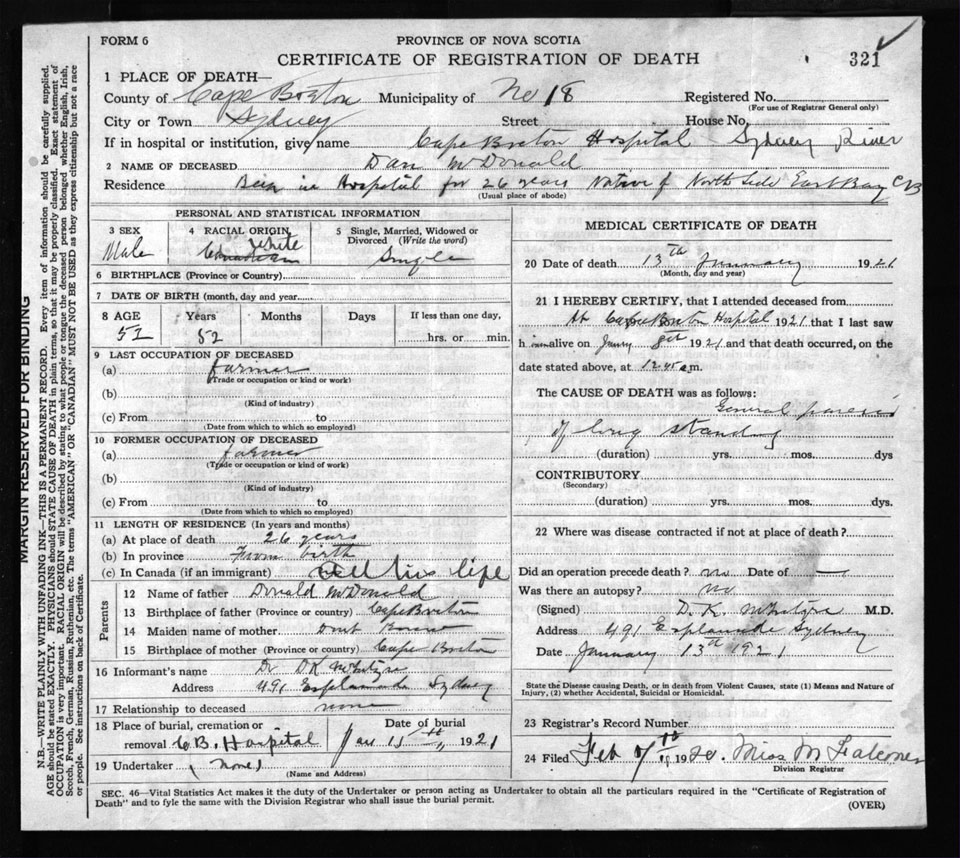 FORM 6
PROVINCE OF NOVA SCOTIA
CERTIFICATE OF REGISTRATION OF DEATH
321
1 PLACE OF DEATH—
County of Cape Breton Municipality of No 18 Registered No.
(For use of Registrar General only)
City or Town Sydney Street House No.
If in hospital or institution, give name Cape Breton Hospital Sydney River
2 NAME OF DECEASED Dan McDonald
Residence Been in Hospital for 26 years Native of North Side East Bay CB
(Usual place of abode)
PERSONAL AND STATISTICAL INFORMATION
3 SEX
Male
4 RACIAL ORIGIN
White
Canadian
5 Single, Married, Widowed or
Divorced (Write the word)
Single
6 BIRTHPLACE (Province or Country)
7 DATE OF BIRTH (month, day and year)
8 AGE Years Months Days If less than one day,
52 52 hrs. or min.
9 LAST OCCUPATION OF DECEASED
(a) farmer
(Trade or occupation or kind or work)
(b)
(Kind of industry)
(c) From to
(Date from which to which so employed)
10 FORMER OCCUPATION OF DECEASED
(a) farmer
(Trade or occupation or kind of work)
(b)
(Kind of industry)
(c) From to
(Date from which to which so employed)
11 LENGTH OF RESIDENCE (In years and months)
(a) At place of death 26 years
(b) In province From birth
(c) In Canada (if an immigrant) All his life
Parents
12 Name of father Donald McDonald
13 Birthplace of father (Province or country) Cape Breton
14 Maiden name of mother Dont
15 Birthplace of mother (Province or country) Cape Breton
16 Informant's name Dr DK McIntyre
Address 491 Esplanade Sydney
17 Relationship to deceased none
18 Place of burial, cremation or
removal C.B. Hospital
Date of burial
Jan 15th, 1921
19 Undertaker (none)
(Name and Address)
MEDICAL CERTIFICATE OF DEATH
20 Date of death 13th January 1921
(Month, day and year)
21 I HEREBY CERTIFY, that I attended deceased from
At Cape Breton Hospital 1921 that I last saw
h im alive on 1921 and that death occurred, on the
date stated above, at 12.45 a m.
The CAUSE OF DEATH was as follows:
General paresis
of long standing
(duration) yrs. mos. dys
CONTRIBUTORY
(Secondary)
(duration) yrs. mos. dys.
22 Where was disease contracted if not at place of death?
Did an operation precede death? no Date of —
Was there an autopsy? no
(Signed) D. K. McIntyre M.D.
Address 491 Esplanade Sydney
Date January 13th 1921
State the Disease causing Death, or in death from Violent Causes, state (1) Means and Nature of
Injury, (2) whether Accidental, Suicidal or Homicidal.
23 Registrar's Record Number
24 Filed Feb 7th 19 Miss M Falconer
Division Registrar
SEC. 46—Vital Statistics Act makes it the duty of the Undertaker or person acting as Undertaker to obtain all the particulars required in the "Certificate of Registration of
Death" and to fyle the same with the Division Registrar who shall issue the burial permit.
(OVER)
MARGIN RESERVED FOR BINDING
N.B.—WRITE PLAINLY WITH UNFADING INK—THIS IS A PERMANENT RECORD. Every item of information should be carefully supplied.
AGE should be stated EXACTLY. PHYSICIANS should STATE CAUSE OF DEATH in plain terms, so that it may be properly classified. Exact statement of
OCCUPATION is very important. RACIAL ORIGIN will be described by stating to what people or tongue the deceased person belonged whether English, Irish,
Scotch, French, German, Russian, Ruthenian, etc. The terms "AMERICAN" OR "CANADIAN" MUST NOT BE USED as they express citizenship but not a race
or people. See instructions on back of Certificate.